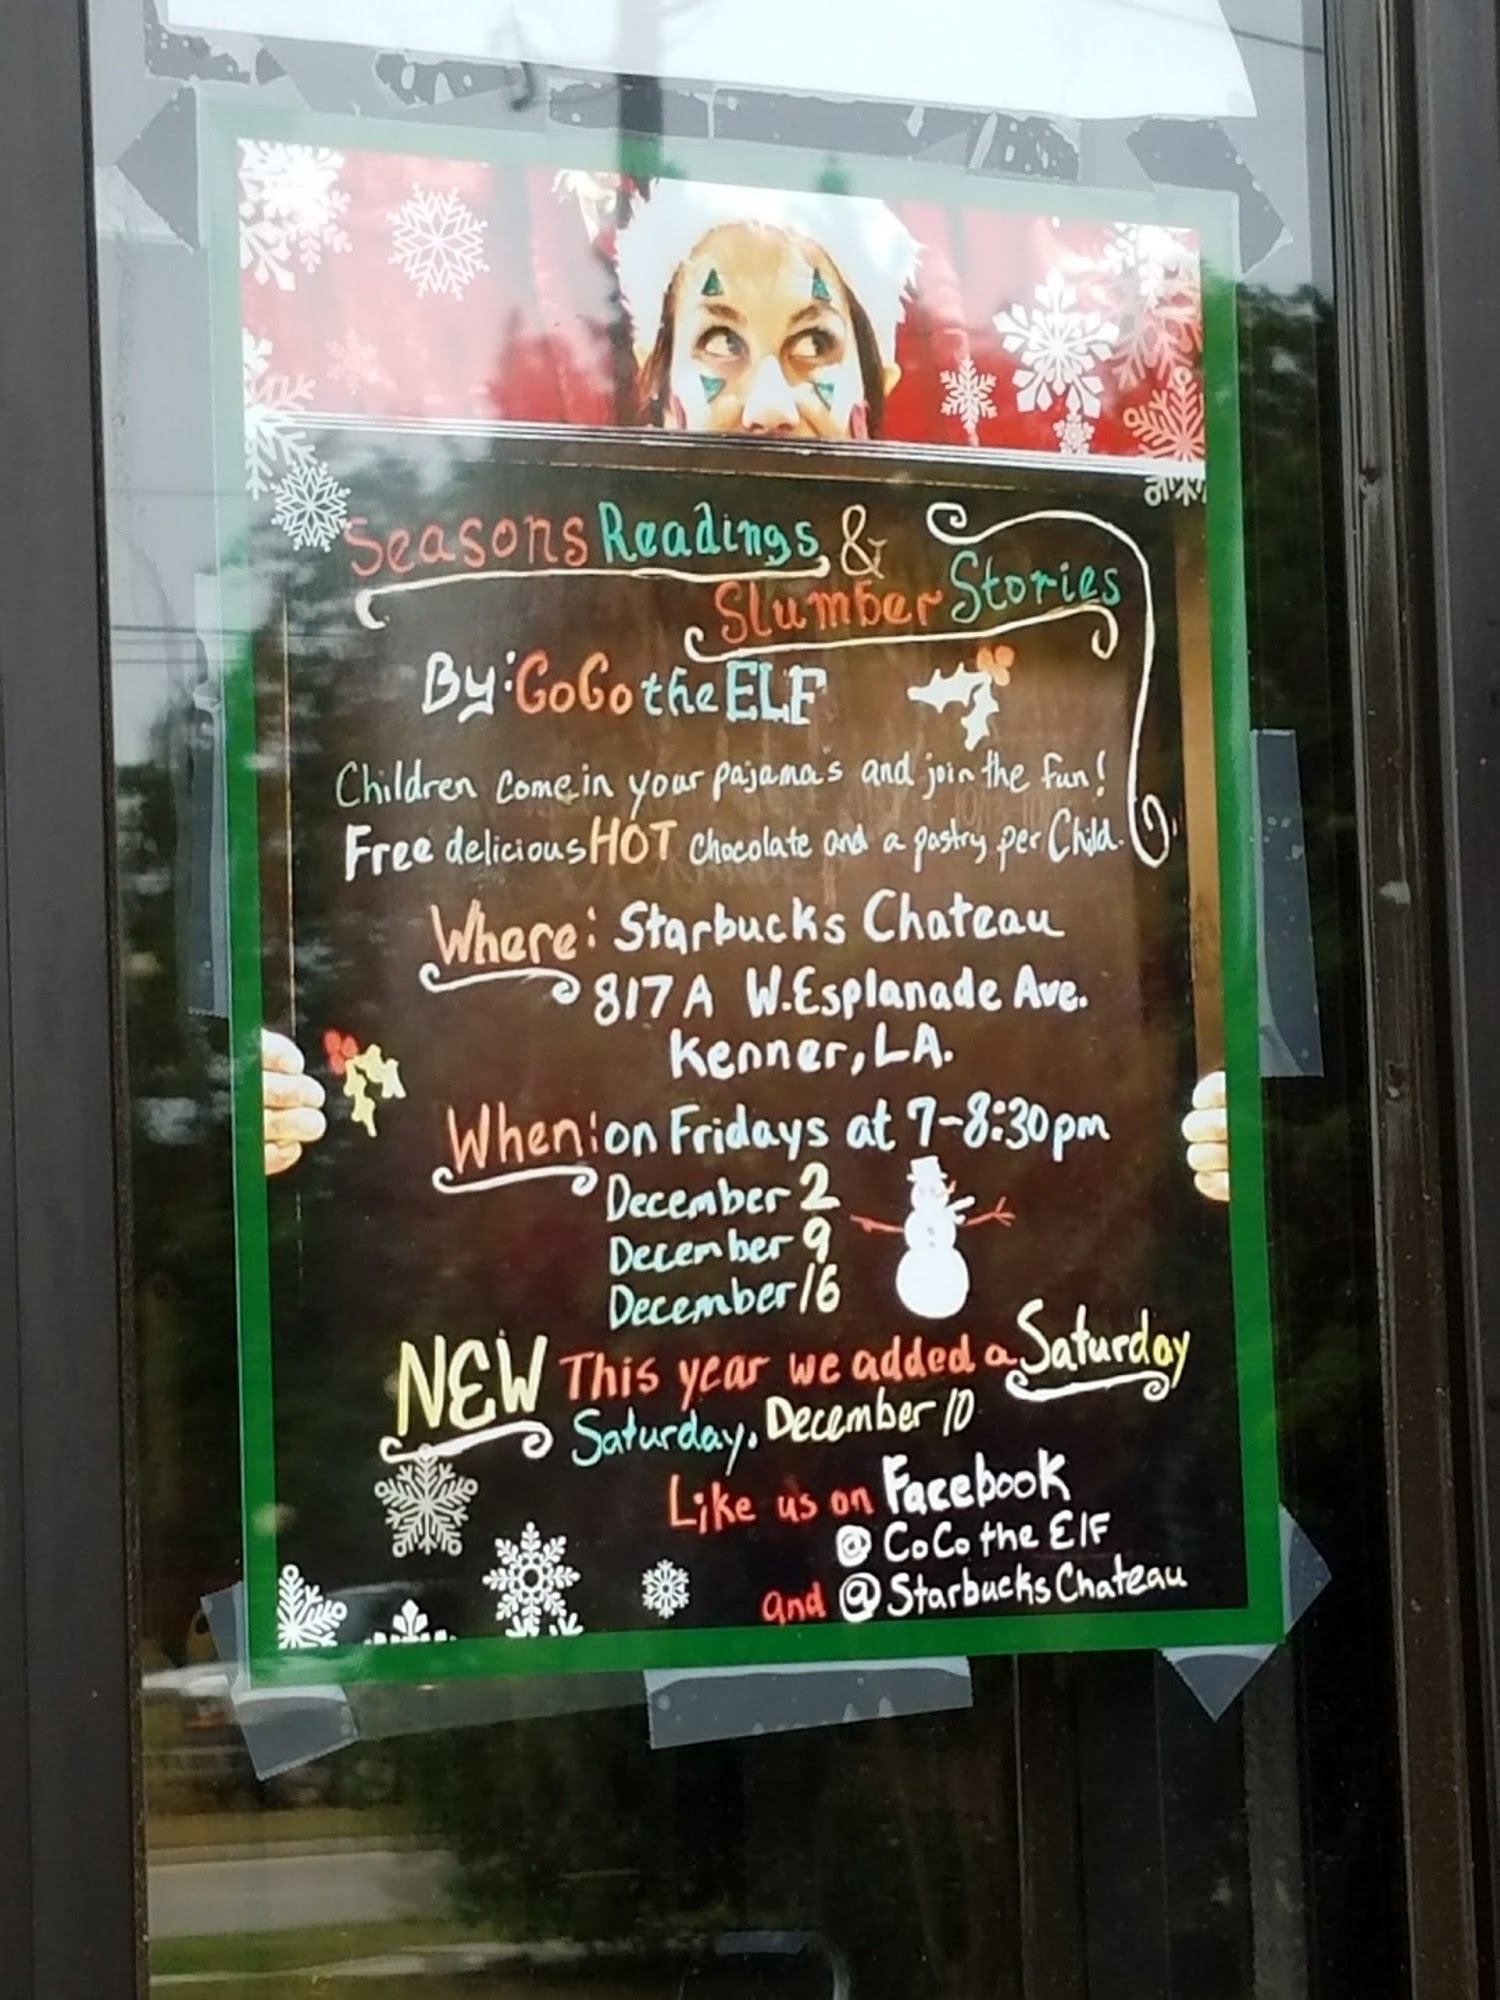 Seasons Readings &
Slumber Stories
By: CoCo the ELF
Children come in your pajamas and join the fun!
Free delicious HOT chocolate and a pastry per Child.
Where: Starbucks Chateau
817 A W. Esplanade Ave.
Kenner, LA.
When: on Fridays at 7-8:30pm
December 2
December 9
December 16
NEW This year we added a Saturday
Saturday, December 10
Like us on Facebook
@ CoCo the Elf
and @ Starbucks Chateau